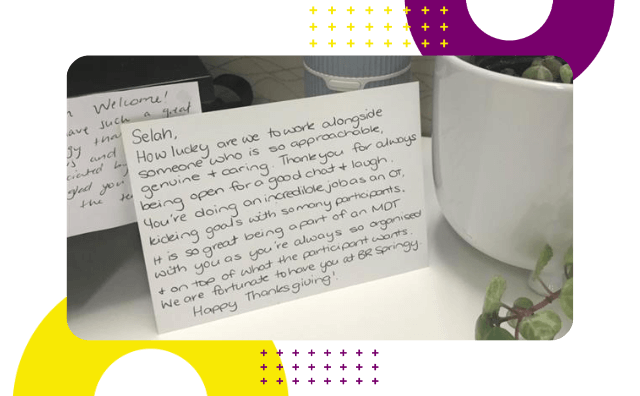 Welcome!
have such a great
the
and
you
the
Selah,
How lucky are we to work alongside
someone who is so approachable,
genuine + caring. Thankyou for always
being open for a good chat + laugh.
You're doing an incredible job as an OT,
kicking goals with so many participants.
It is so great being a part of an MDT
with you as you're always so organised
+ on top of what the participant wants.
We are fortunate to have you at BR Springy.
Happy Thanksgiving!